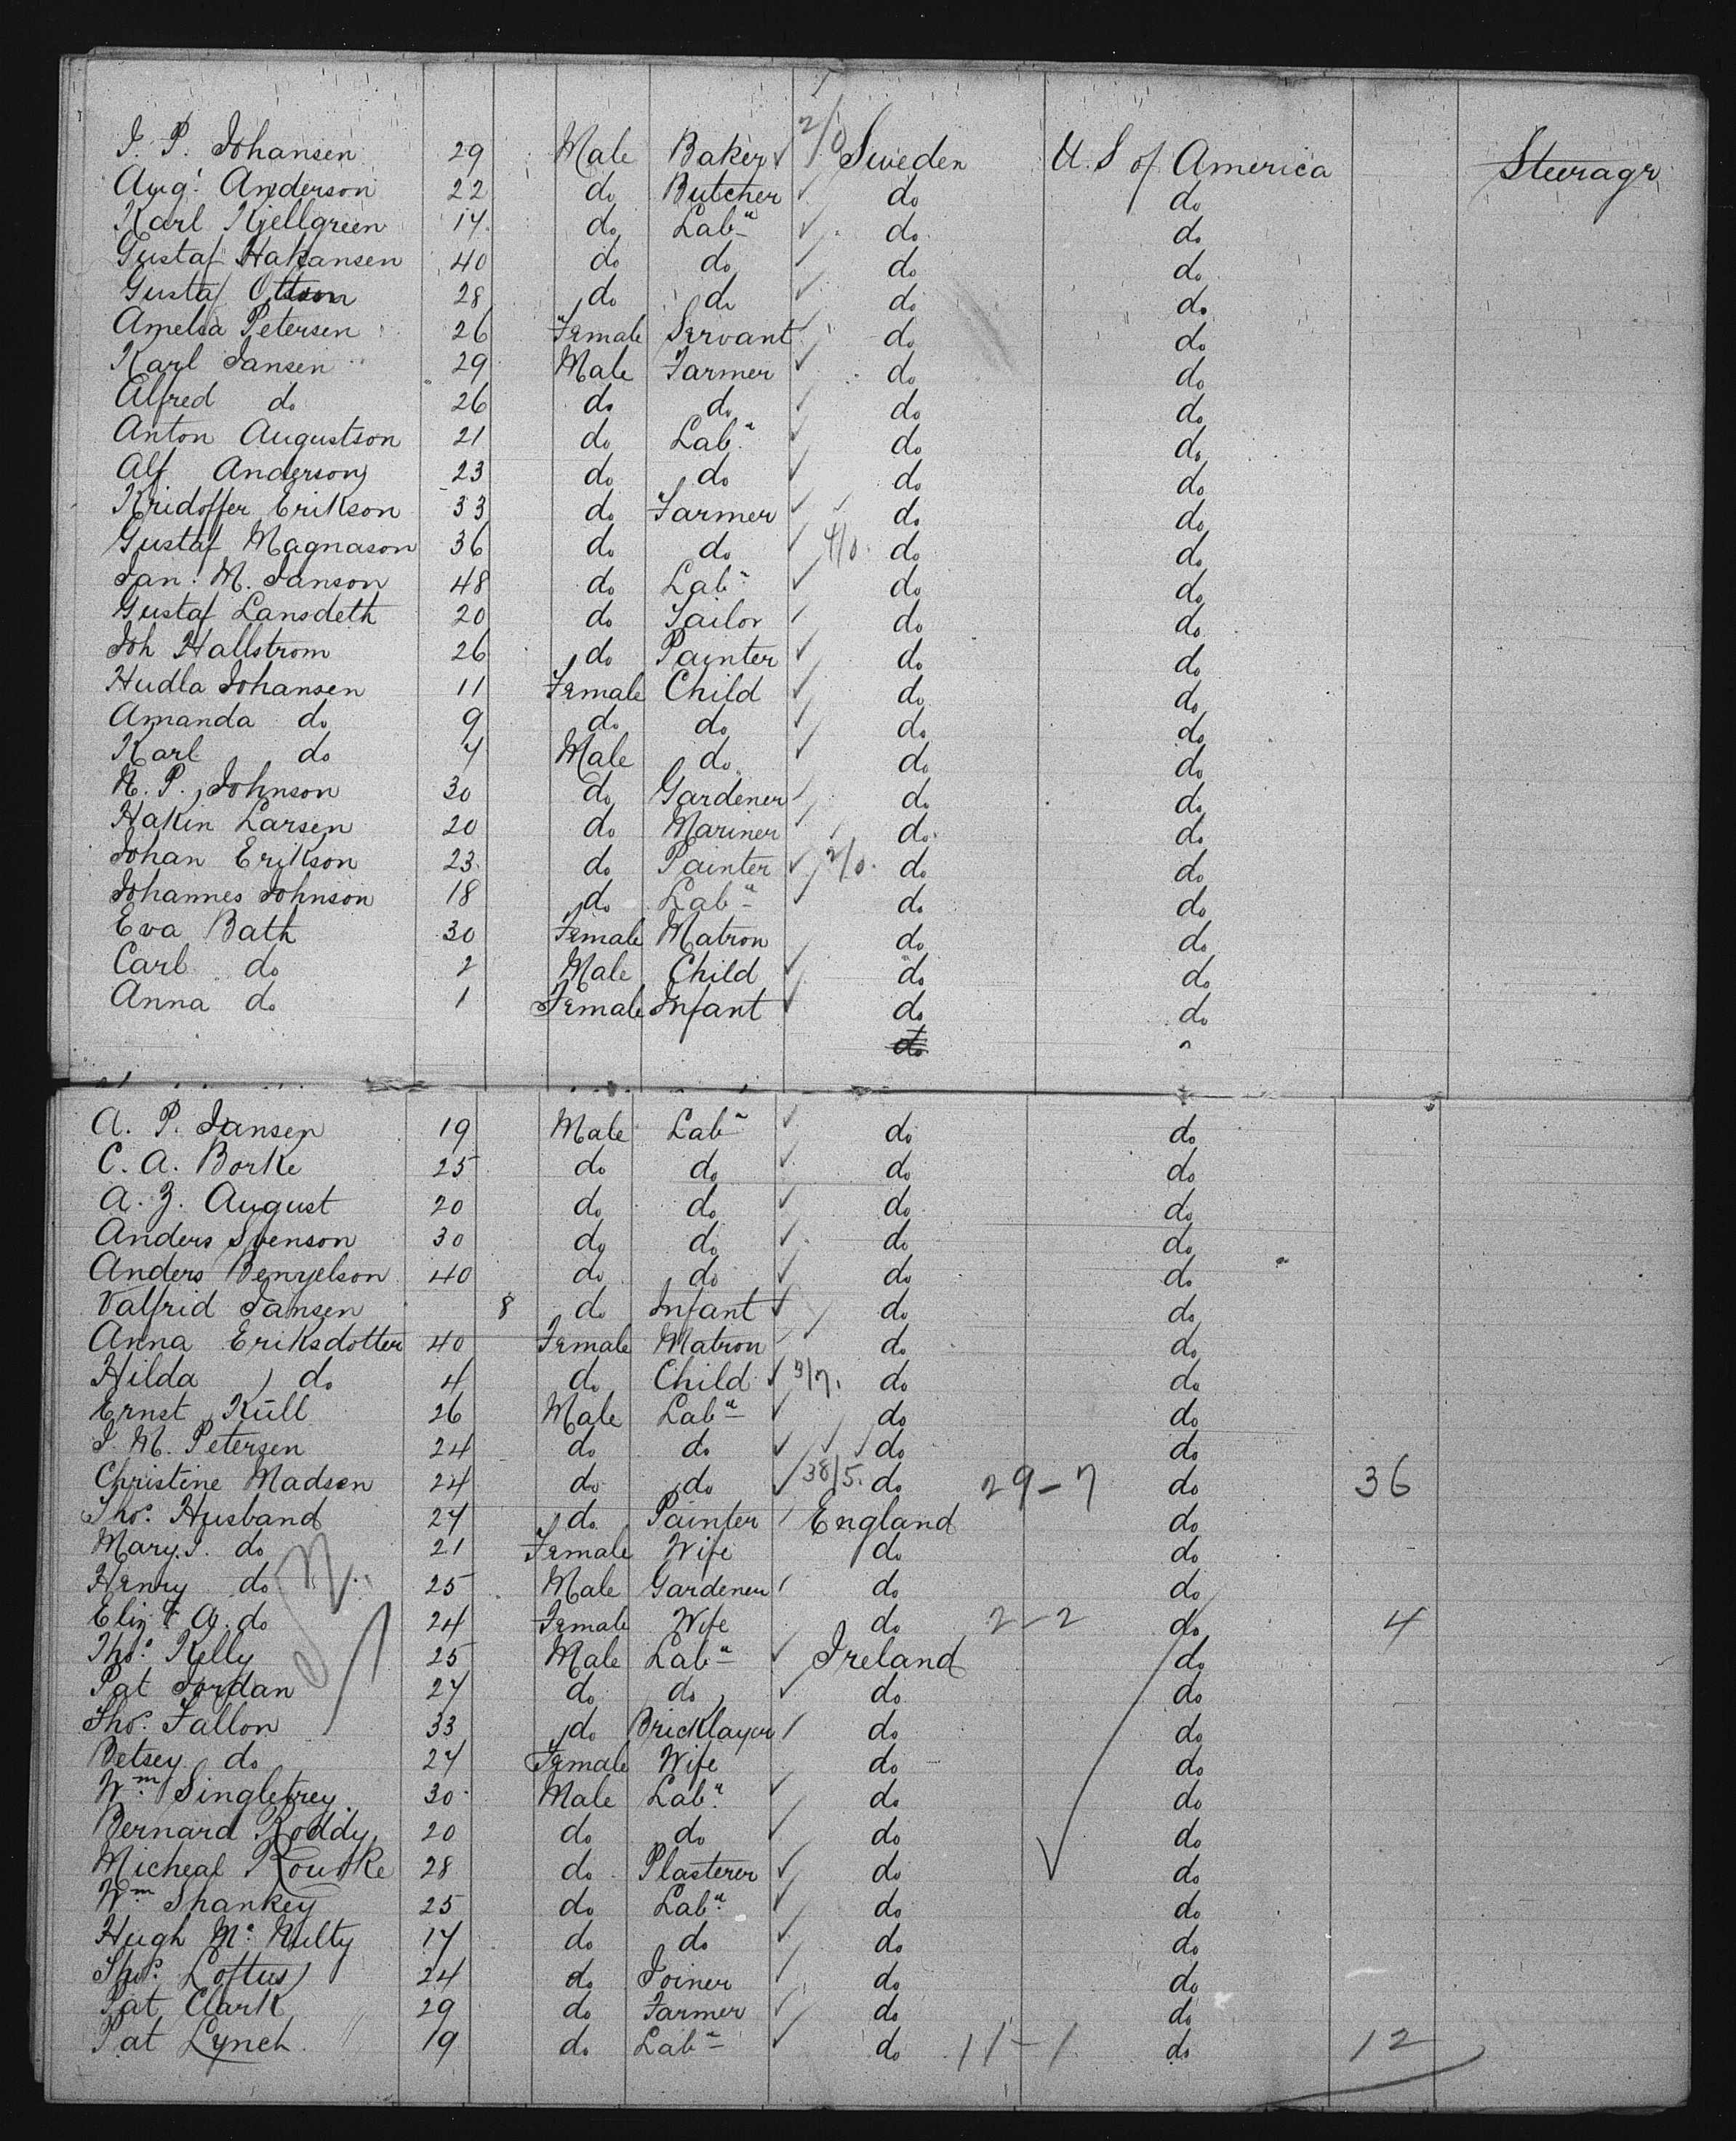 J. P. Johansen 29 Male Baker 2/0 Sweden U. S of America Steerage
Aug. Anderson 22 do Butcher do do
Karl Kjellgreen 14 do Lab do do
Gustaf Hakansen 40 do do do do
Gustaf Ottson 28 do do do do
Amelia Petersen 26 Female Servant do do
Karl Jansen 29 Male Farmer do do
Alfred do 26 do do do do
Anton Augustson 21 do Lab do do
Alf Anderson 23 do do do do
Kridoffer Erikson 33 do Farmer do do
Gustaf Magnason 36 do do 4/0 do do
Jan. M. Janson 48 do Lab do do
Gustaf Lansdeth 20 do Tailor do do
Joh Hallstrom 26 do Painter do do
Hudla Johansen 11 Female Child do do
Amanda do 9 do do do do
Karl do 7 Male do do do
N. P. Johnson 30 do Gardener do do
Hakin Larsen 20 do Mariner do do
Johan Erikson 23 do Painter 2/0 do do
Johannes Johnson 18 do Lab do do
Eva Bath 30 Female Matron do do
Carl do 2 Male Child do do
Anna do 1 Female Infant do do
do
A. P. Jansen 19 Male Lab do do
C. A. Borke 25 do do do do
A. Z. August 20 do do do do
Anders Svenson 30 do do do do
Anders Benyelson 40 do do do do
Valfrid Jansen 8 do Infant do do
Anna Eriksdotter 40 Female Matron do do
Hilda do 4 do Child 3/7 do do
Ernst Küll 26 Male Lab do do
J. M. Petersen 24 do do do do
Christine Madsen 24 do do 38/5 do 29-7 do 36
Thos. Husband 27 do Painter England do
Mary. J. do 21 Female Wife do do
Henry do 25 Male Gardener do do
Eliz A. do 24 Female Wife do 2-2 do 4
Thos. Kelly 25 Male Lab Ireland do
Pat Jordan 27 do do do do
Thos. Fallon 33 do Bricklayer do do
Betsey do 27 Female Wife do do
Wm Singletrey 30 Male Lab do do
Bernard Roddy 20 do do do do
Micheal Rourke 28 do Plasterer do do
Wm Shankey 25 do Lab do do
Hugh Mc Nulty 17 do do do do
Thos. Loftus 24 do Joiner do do
Pat Clark 29 do Farmer do do
Pat Lynch 19 do Lab do 11-1 do 12